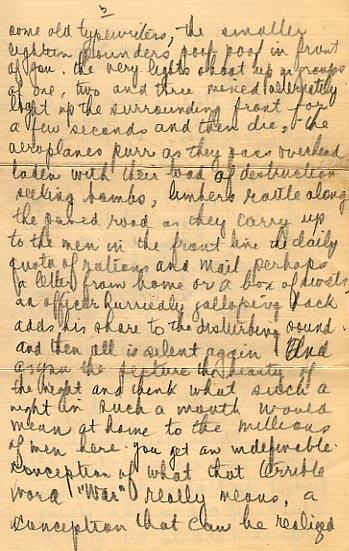 3
some old typewriters, the smaller
eighten pounders poop poof in front
of you. the very lights shoot up in groups
of one, two and three mixed alternately
light up the surrounding front for
a few seconds and then die, the
aeroplanes purr as they pass overhead
laden with their load of destruction
seeking bombs, limbers rattle along
the paved road as they carry up
to the men in the front line the daily
quota of rations and mail perhaps
a letter from home or a box of sweets
an officer hurriedly galloping back
adds his share to the disturbing sound.
and then all is silent again And
as you the picture the beauty of
the night and think what such a
night in such a month would
mean at home to the millions
of men here. you get an indefinable
conception of what that terrible
word "War" really means, a
conception that can be realized